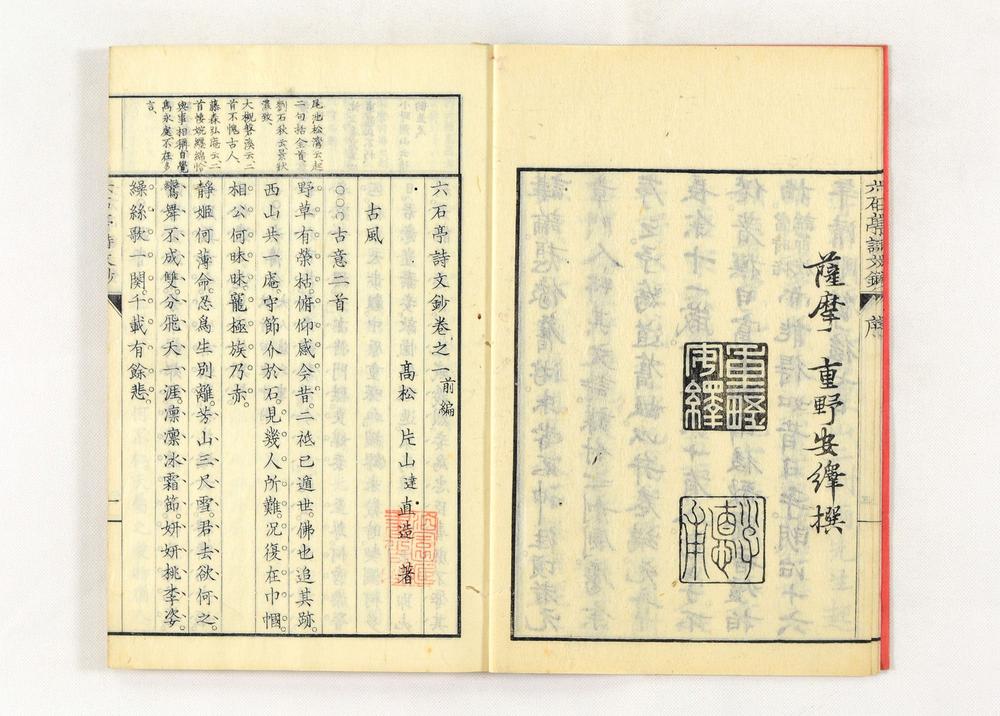 六石亭詩文鈔 序
薩摩 重野安繹撰
尾池松灣云起
二句括全首、
劉石秋云景狀
濃致、
大槻磐溪云二
首不愧古人、
藤森弘庵云二
首悽婉纒綿恰
與事相稱自覺
雋永處不在多
言、
六石亭詩文鈔卷之一 前編
高松 片山達直造 著
古風
○○○古意二首
野草有榮枯。俯仰感今昔。二祗已遁世。佛也追其跡。
西山共一庵。守節介於石。見幾人所難。況復在巾幗。
相公何昧昧。寵極族乃赤。
靜姬何薄命。忍爲生別離。芳山三尺雪。君去欲何之。
鸞舞不成雙。分飛天一涯。凛凛冰霜節。妍妍桃李姿。
繰絲歌一関。千載有餘悲。
一